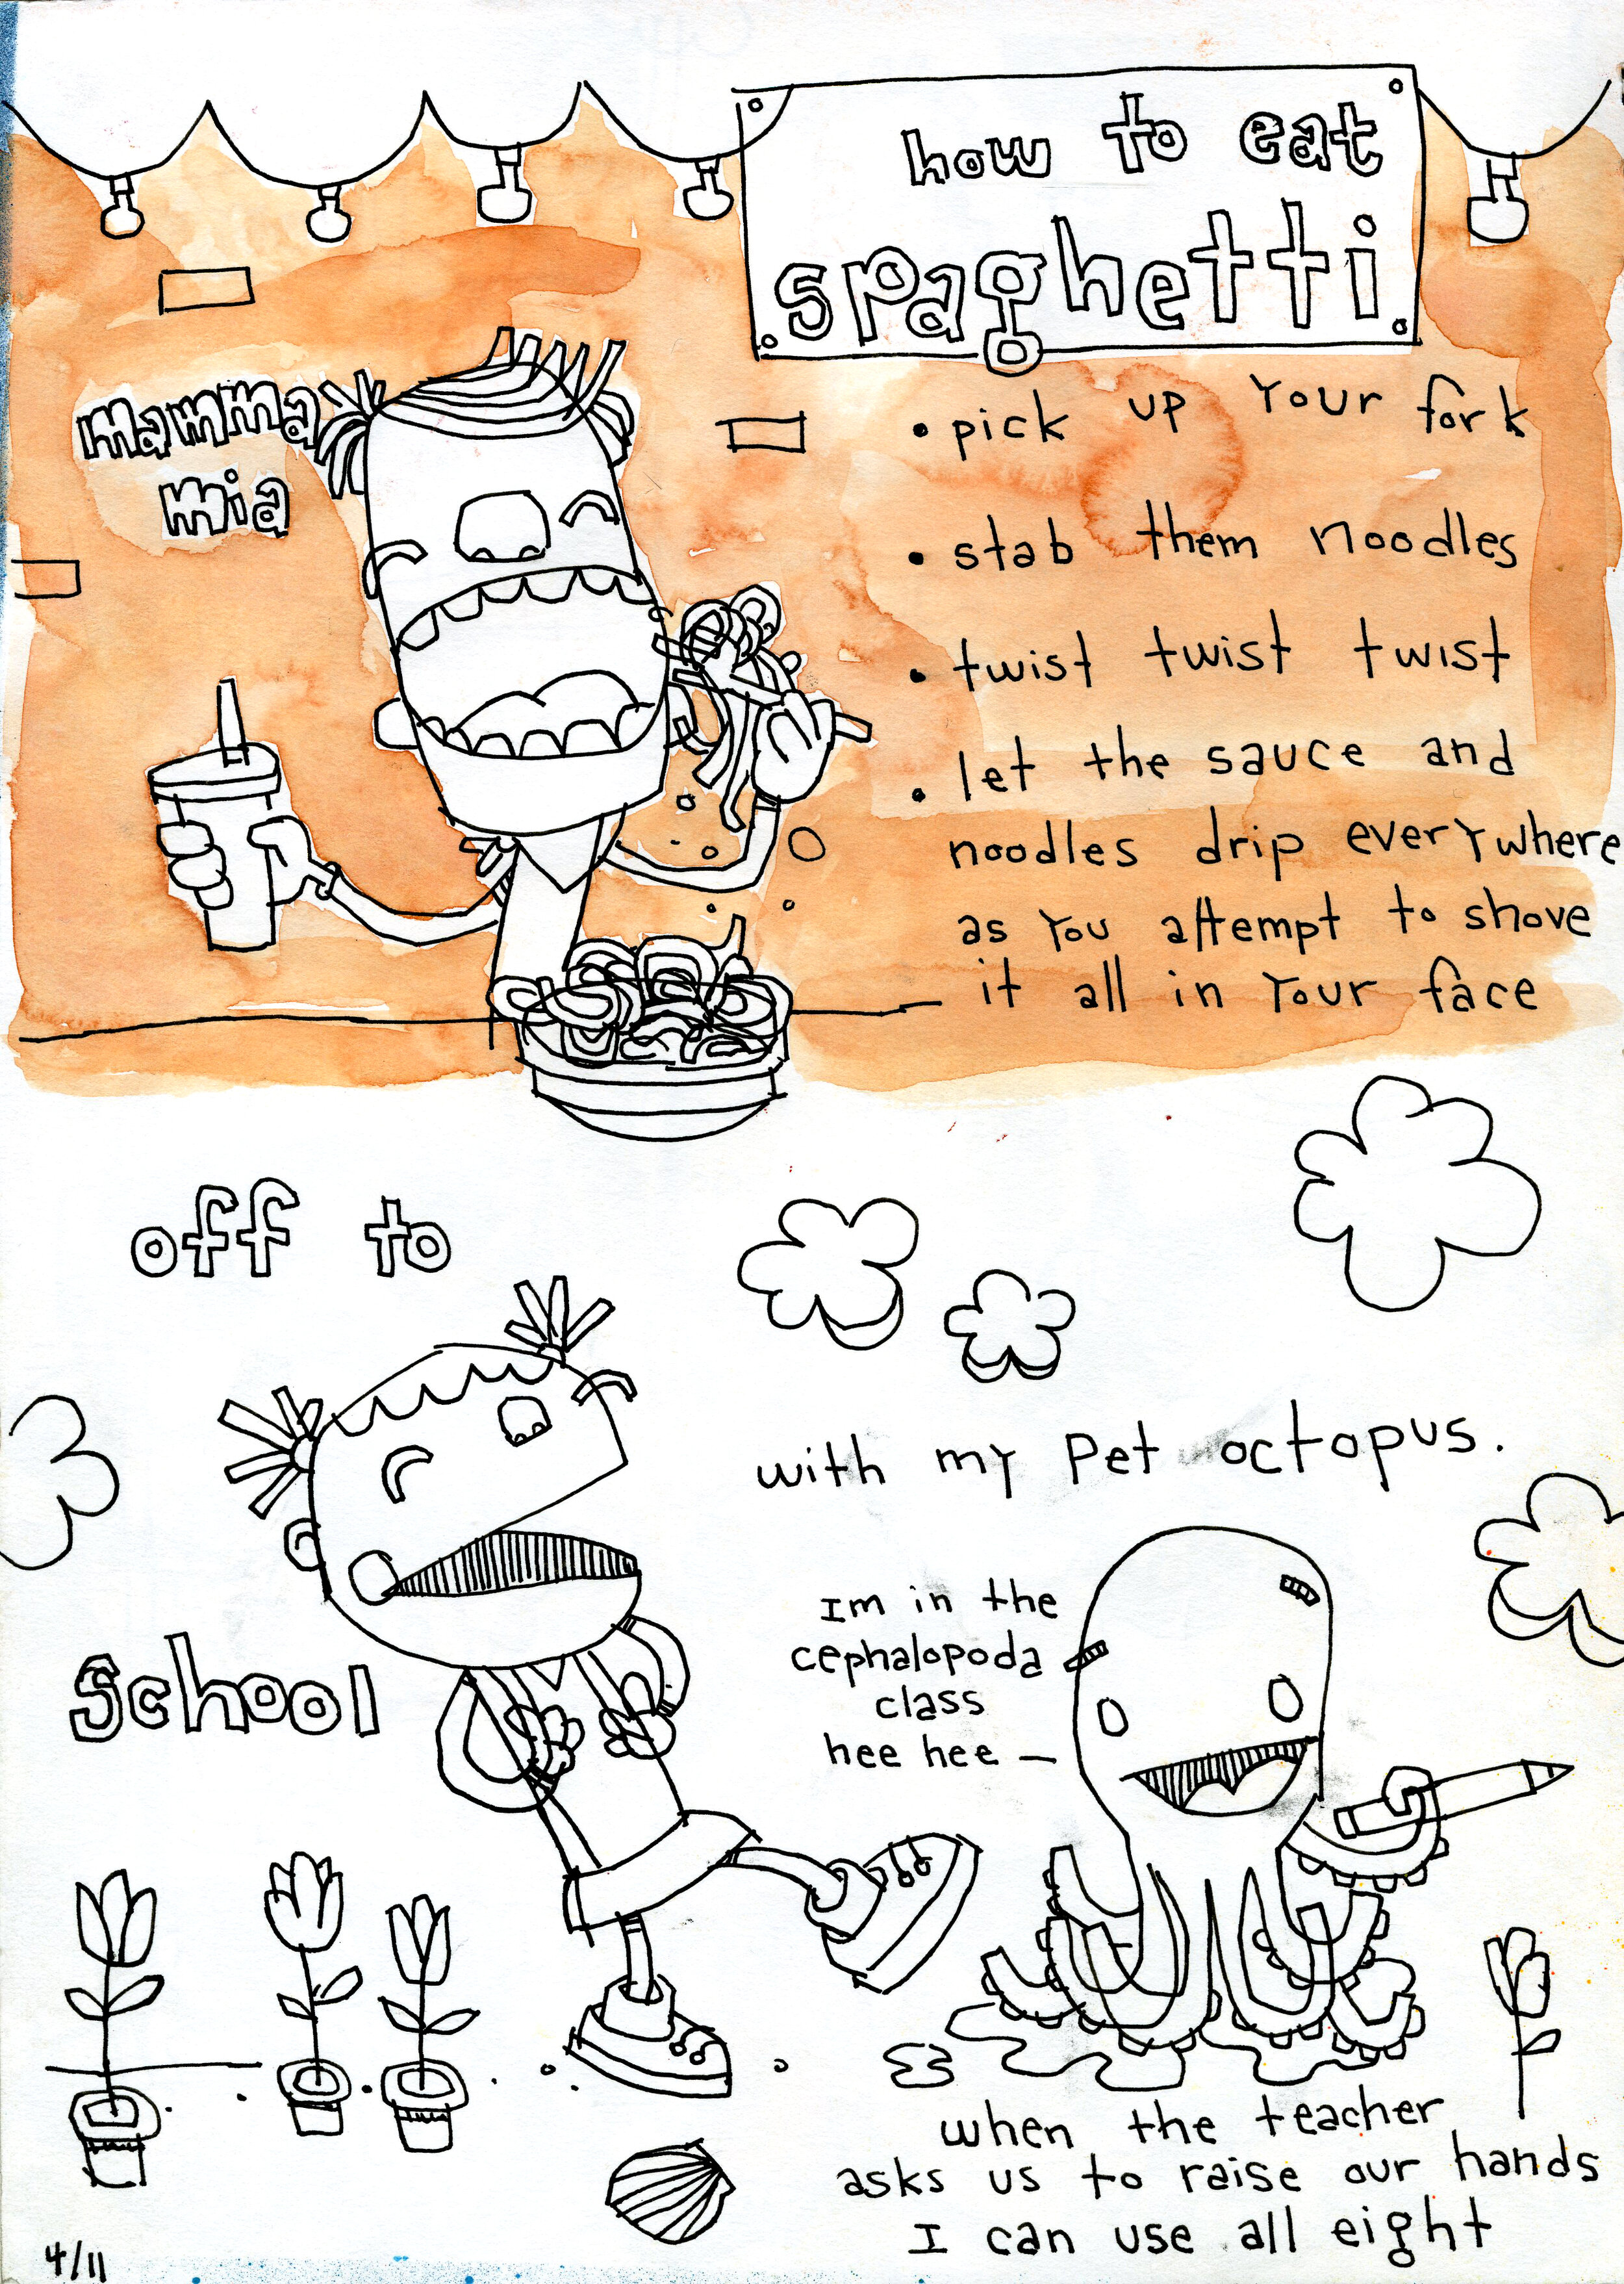 how to eat
spaghetti
mamma
mia
• pick up your fork
• stab them noodles
• twist twist twist
• let the sauce and
noodles drip everywhere
as you attempt to shove
it all in your face
off to
school
with my pet octopus.
Im in the
cephalopoda
class
hee hee —
when the teacher
asks us to raise our hands
I can use all eight
4/11